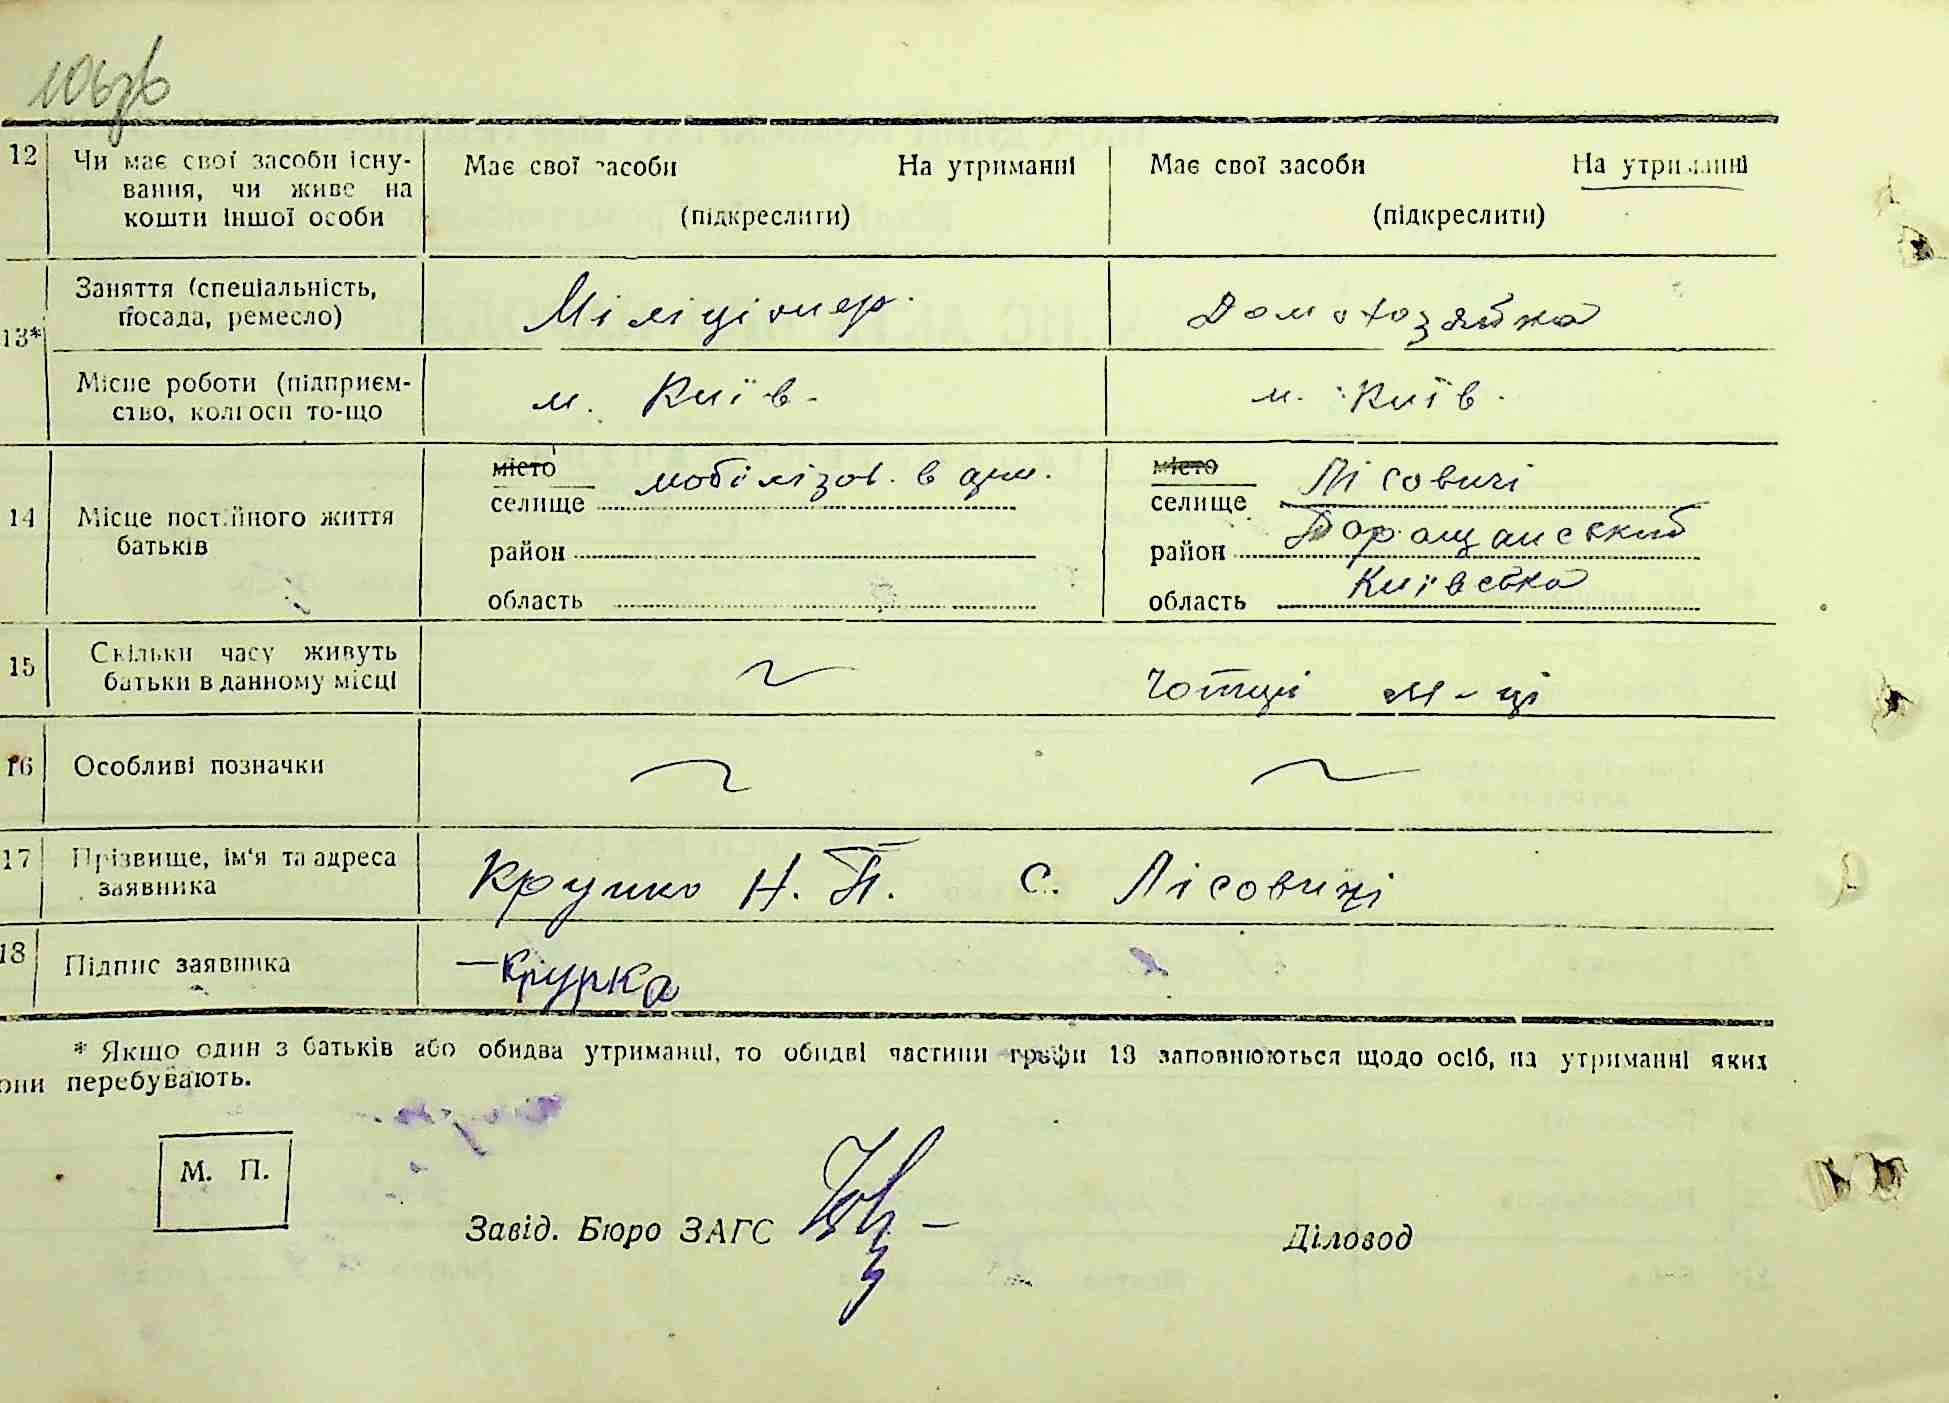 12 Чи має свої засоби існу-
вання, чи живе на
кошти іншої особи
Має свої засоби На утриманні
(підкреслити)
Має свої засоби На утриманні
(підкреслити)
13*
Заняття (спеціальність,
посада, ремесло)
Міліціонер
Домохозяйка
Місце роботи (підприєм-
ство, колгосп то-що
м. Київ.
м. Київ.
14 Місце постійного життя
батьків
місто
селище мобілізов. в арм.
район
область
місто
селище Лісовичі
район Таращанський
область Київська
15 Скільки часу живуть
батьки в данному місці
м-ці
16 Особливі позначки
17 Прізвище, ім'я та адреса
заявника
Н. П. с. Лісовичі
18 Підпис заявника
* Якщо один з батьків або обидва утриманці, то обидві частини графи 13 заповнюються щодо осіб, на утриманні яких
они перебувають.
М. П.
Завід. Бюро ЗАГС
Діловод